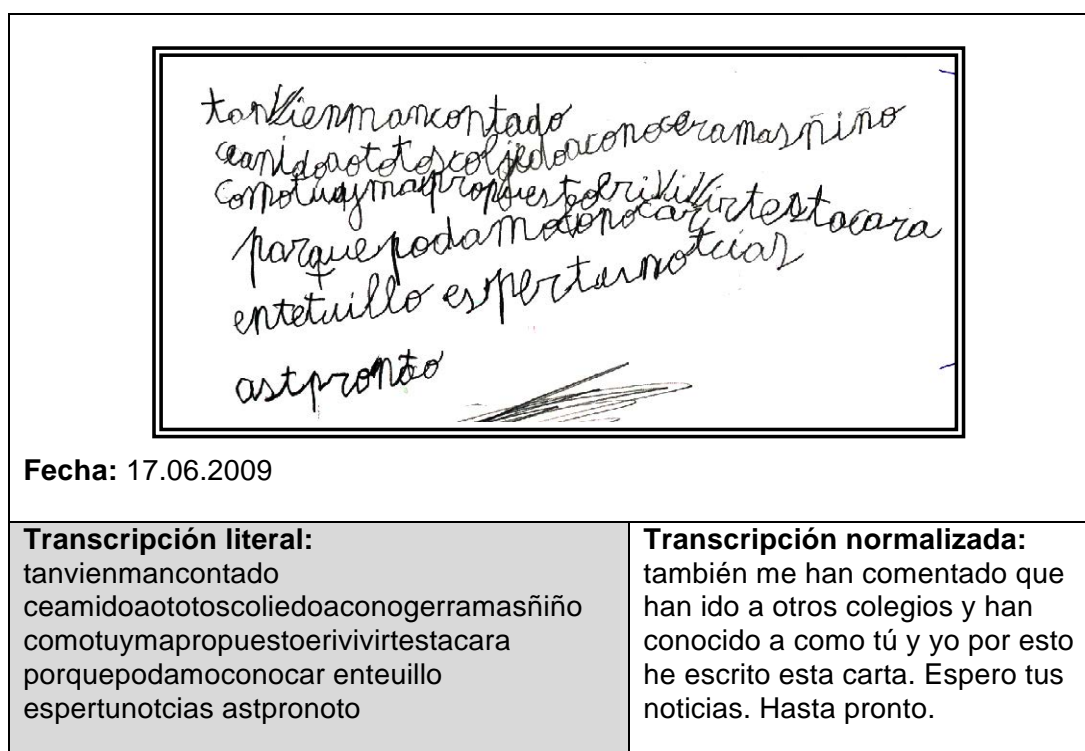 tanvienmancontado
ceanidoaototoscoljedoaconoceramasñiño
comotuaymapropuestoerivivirtestacara
parquepodamoconocar
entetuillo espertusnotcias
astpronoto
Fecha: 17.06.2009
Transcripción literal:
tanvienmancontado
ceamidoaototoscoliedoaconogerramasñiño
comotuymapropuestoerivivirtestacara
porquepodamoconocar enteuillo
espertunotcias astpronoto
Transcripción normalizada:
también me han comentado que
han ido a otros colegios y han
conocido a como tú y yo por esto
he escrito esta carta. Espero tus
noticias. Hasta pronto.